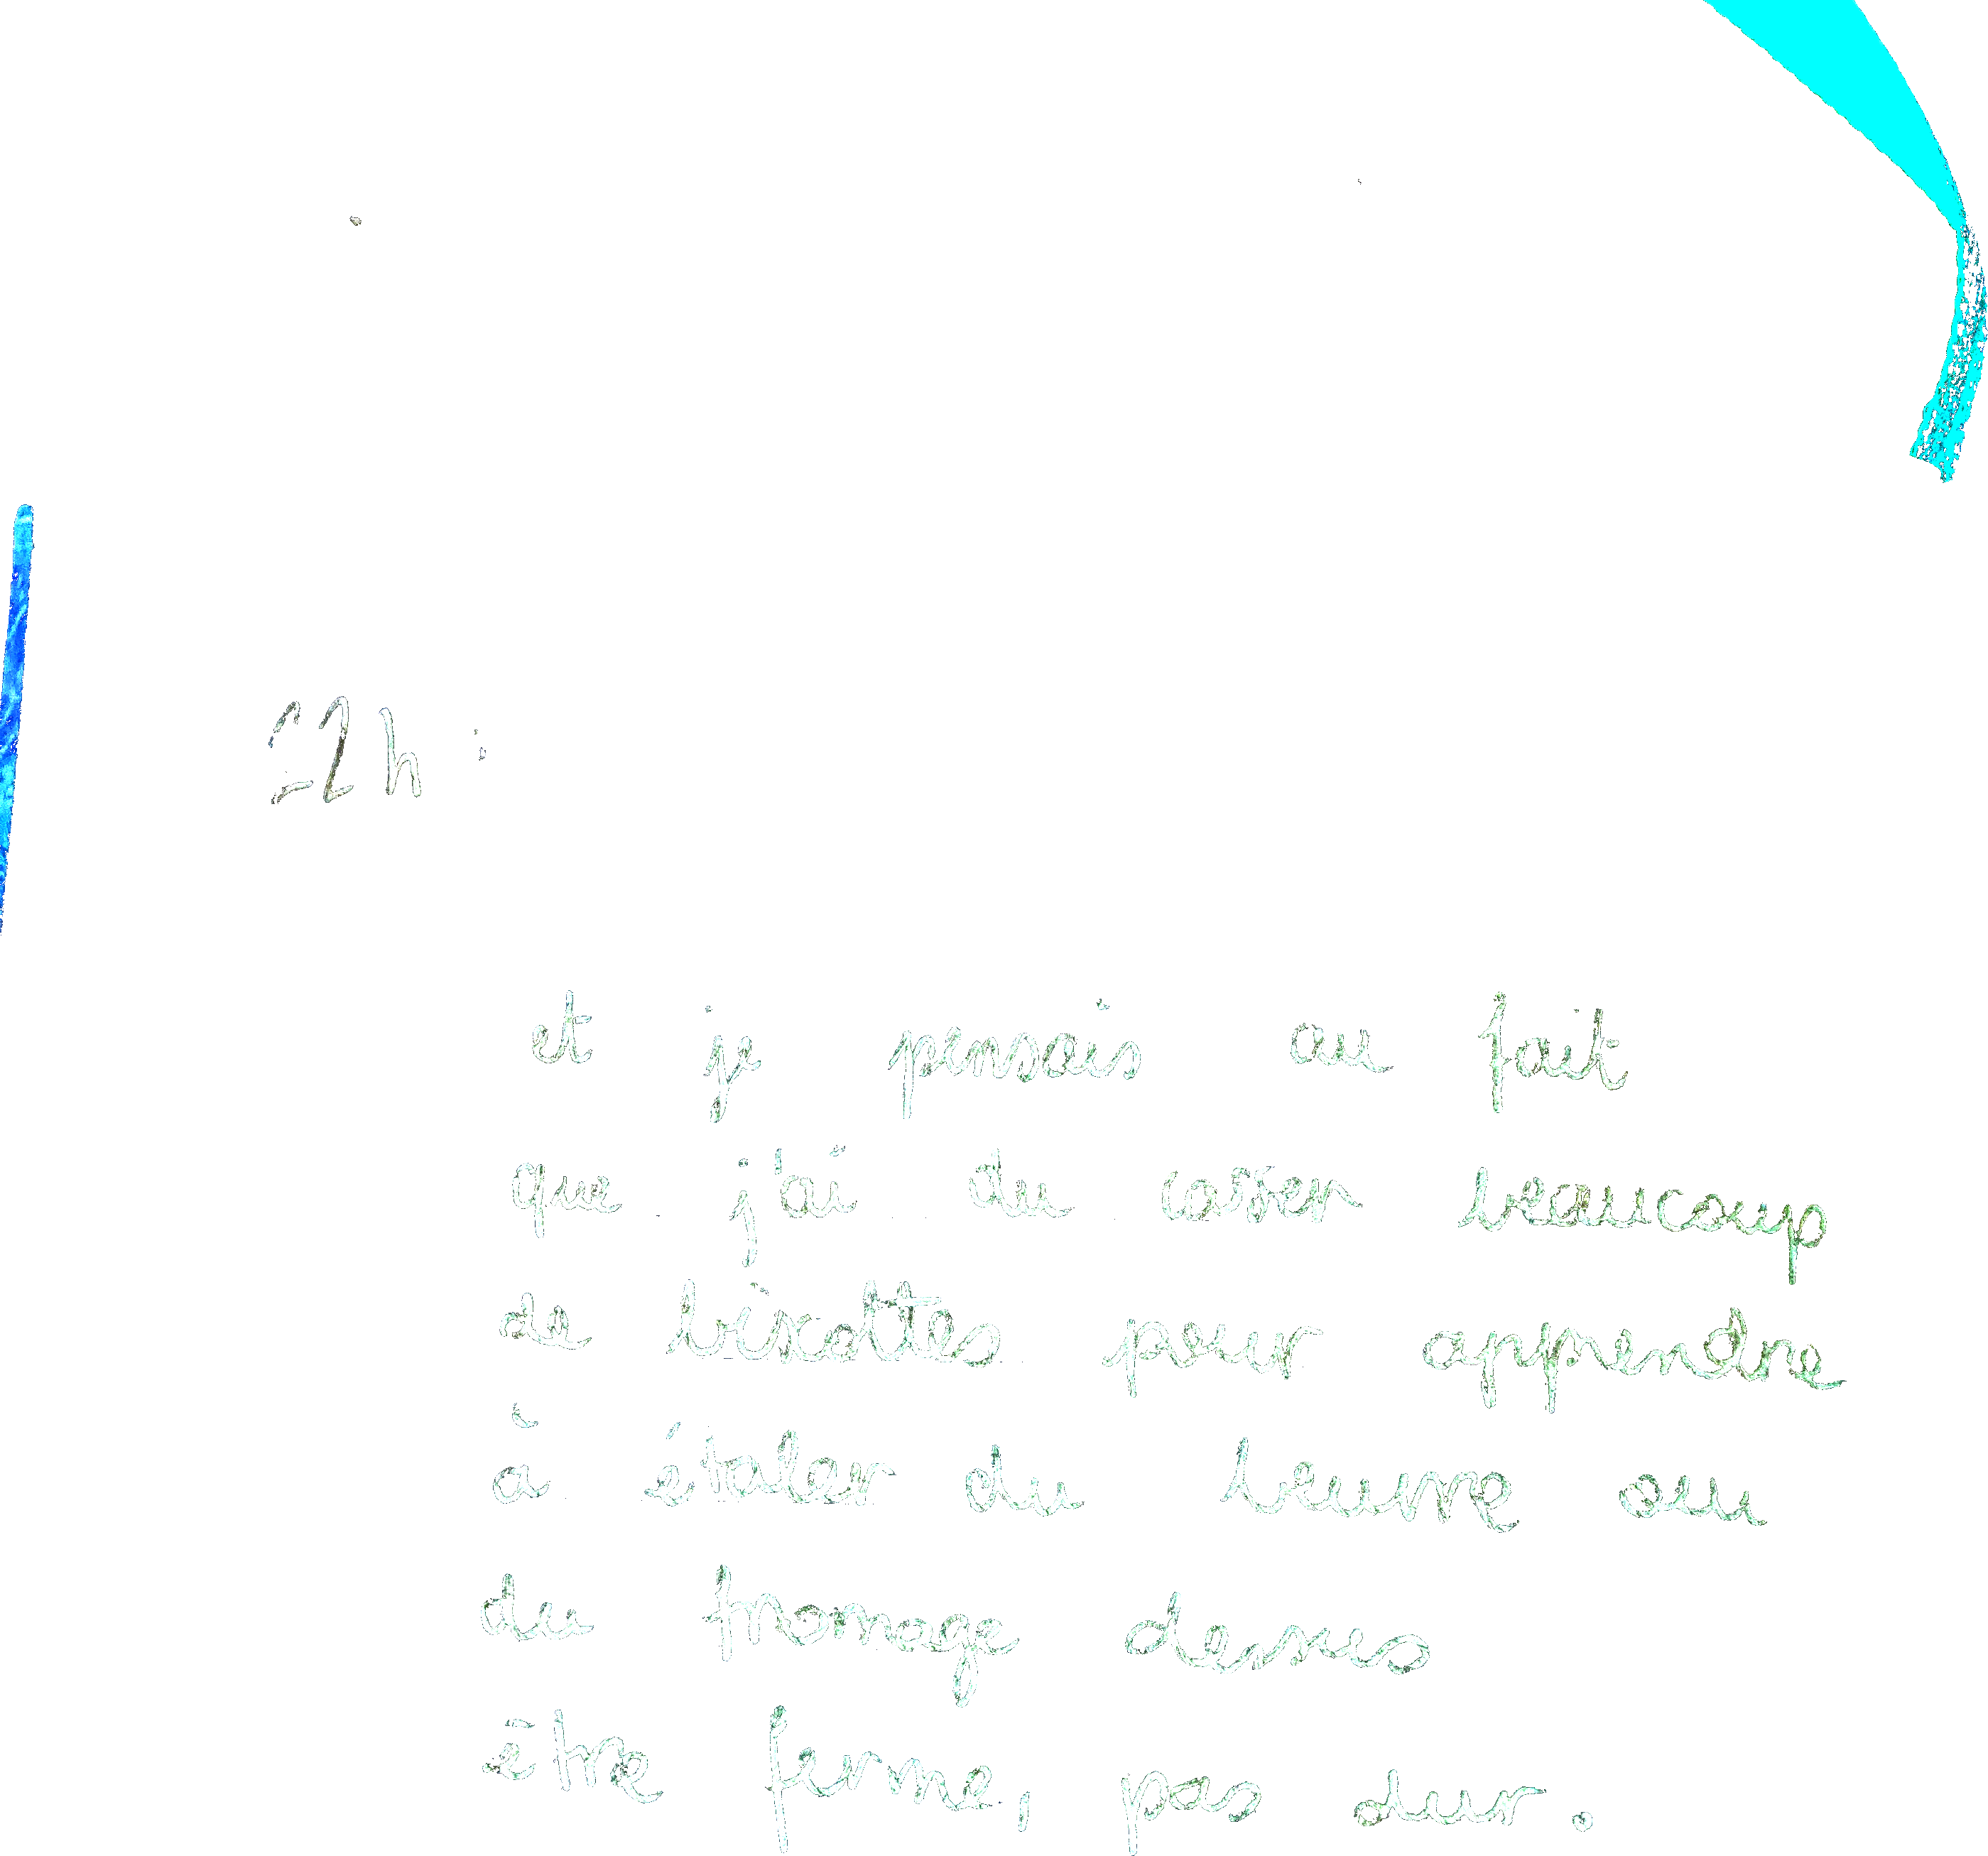 22h :
et je pensais au fait
que j'ai du casser beaucoup
de biscottes pour apprendre
à étaler du beurre ou
du fromage dessus
être ferme, pas dur.